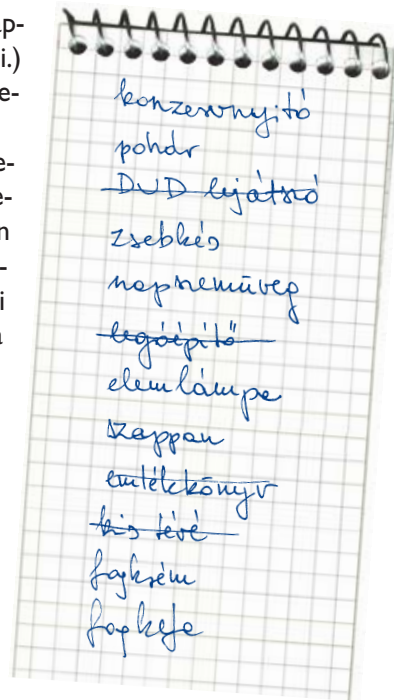 ap-
i.)
e-
e-
e-
n
-
i
a
konzervnyitó
pohár
DVD lejátszó
zsebkés
napszemüveg
legóépítő
elemlámpa
szappan
emlékkönyv
kis tévé
fogkrém
fogkefe